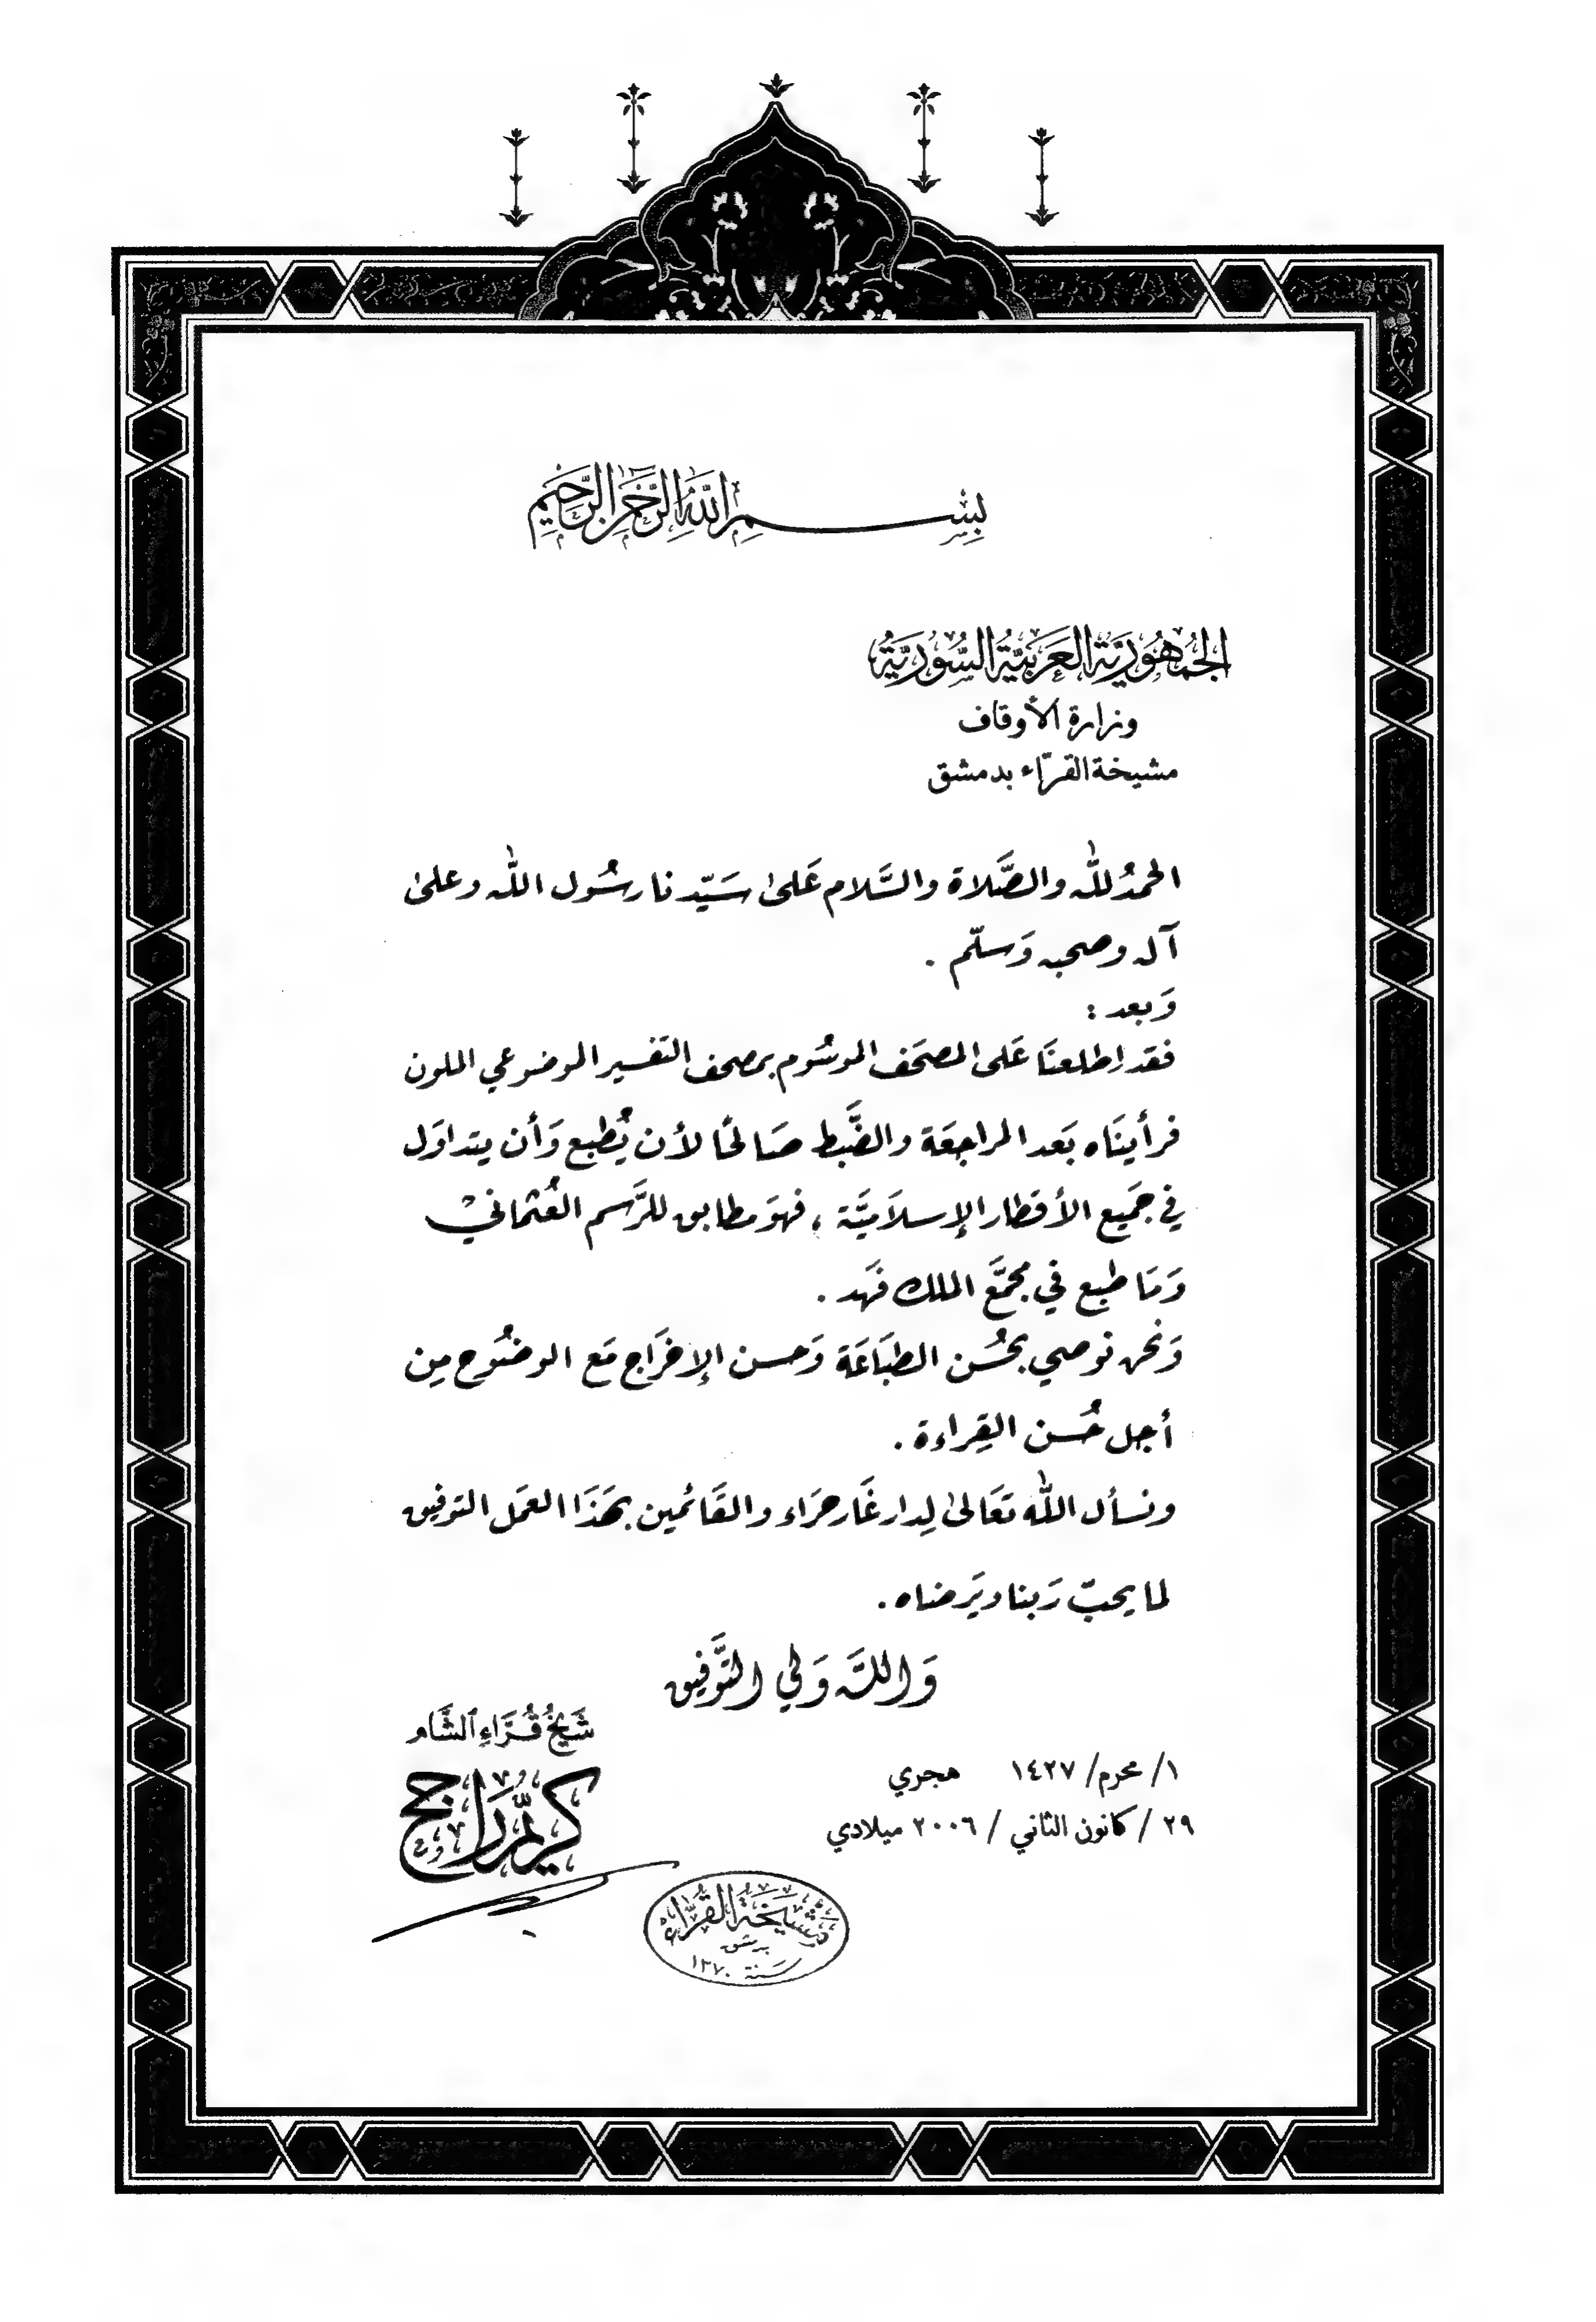 بِسْمِ اللَّهِ الرَّحْمَنِ الرَّحِيمِ
الجُمْهُورِيَّة العَرَبِيَّة السُّورِيَّةُ
وزارة الأوقاف
مشيخة القرّاء بدمشق
الحمدُ للّٰه والصَّلاة والسَّلام عَلىٰ سَيّدنا رسُول اللّه وعلىٰ
آله وصحبه وَسلّم .
وَبعد :
فقد اِطلعنَا عَلى المصحَف الموسُوم بمصحف التفسير الموضوعي الملون
فرأينَاه بَعد المراجعَة والضَّبط صَالحًا لأن يُطبع وَأن يتداوَل
في جَميع الأقطار الإسلاَميَّة ، فهوَ مطابق للرَّسم العُثماني
وَمَا طبع في مجمَّع الملك فَهد .
وَنحن نوصي بحُسن الطبَاعَة وَحسن الإخرَاج مَع الوضُوح مِن
أجل حُسن القِراءة .
ونسأل اللّٰه تعَالىٰ لِدار غَار حرَاء والقَائمين بهَذَا العمَل التوفيق
لما يحبّ رَبنا ويَرضاه .
وَاللّه وَلي التَّوفيق
شَيْخُ قُرَّاءِ الشَّام
كريّم رَاجح
١/ محرم/ ١٤٢٧ هجري
٢٩ / كانون الثاني / ٢٠٠٦ ميلادي
مَشْيَخَةُ القُرَّاء
بدمشق
سَنة ١٣٧٠